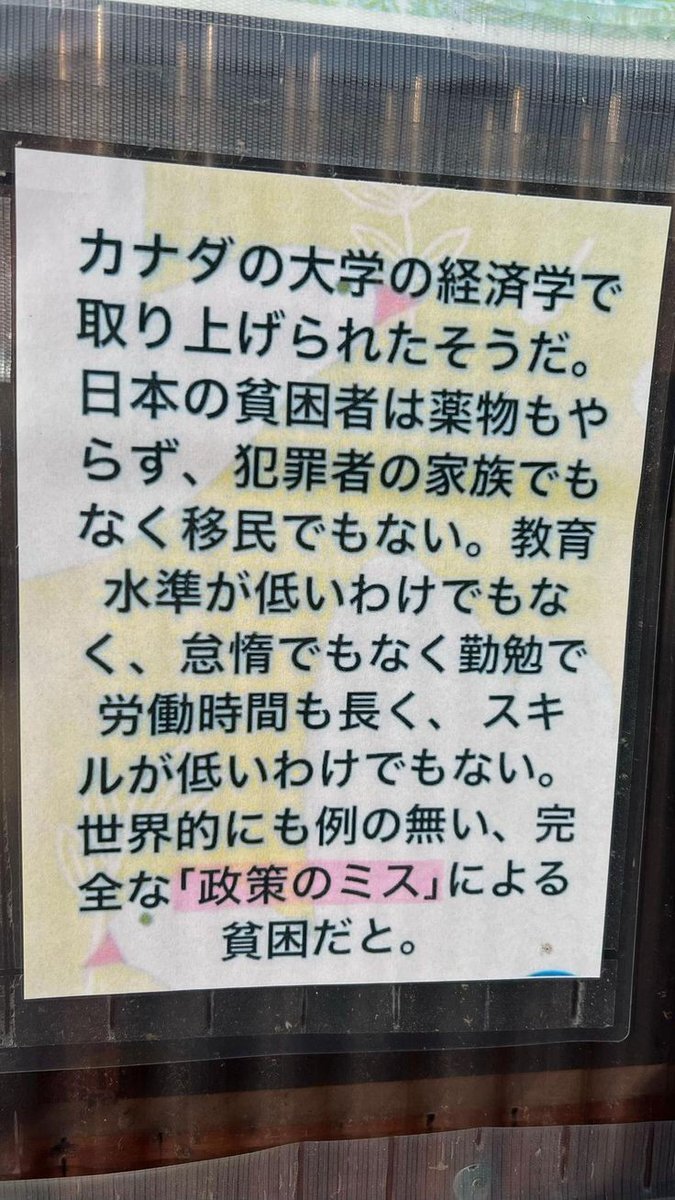 カナダの大学の経済学で
取り上げられたそうだ。
日本の貧困者は薬物もや
らず、犯罪者の家族でも
なく移民でもない。教育
水準が低いわけでもな
く、怠惰でもなく勤勉で
労働時間も長く、スキ
ルが低いわけでもない。
世界的にも例の無い、完
全な「政策のミス」による
貧困だと。